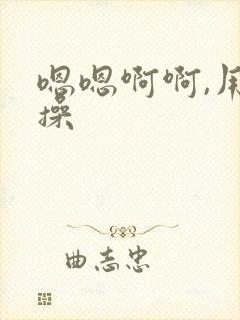 嗯嗯啊啊,用
操
曲志忠